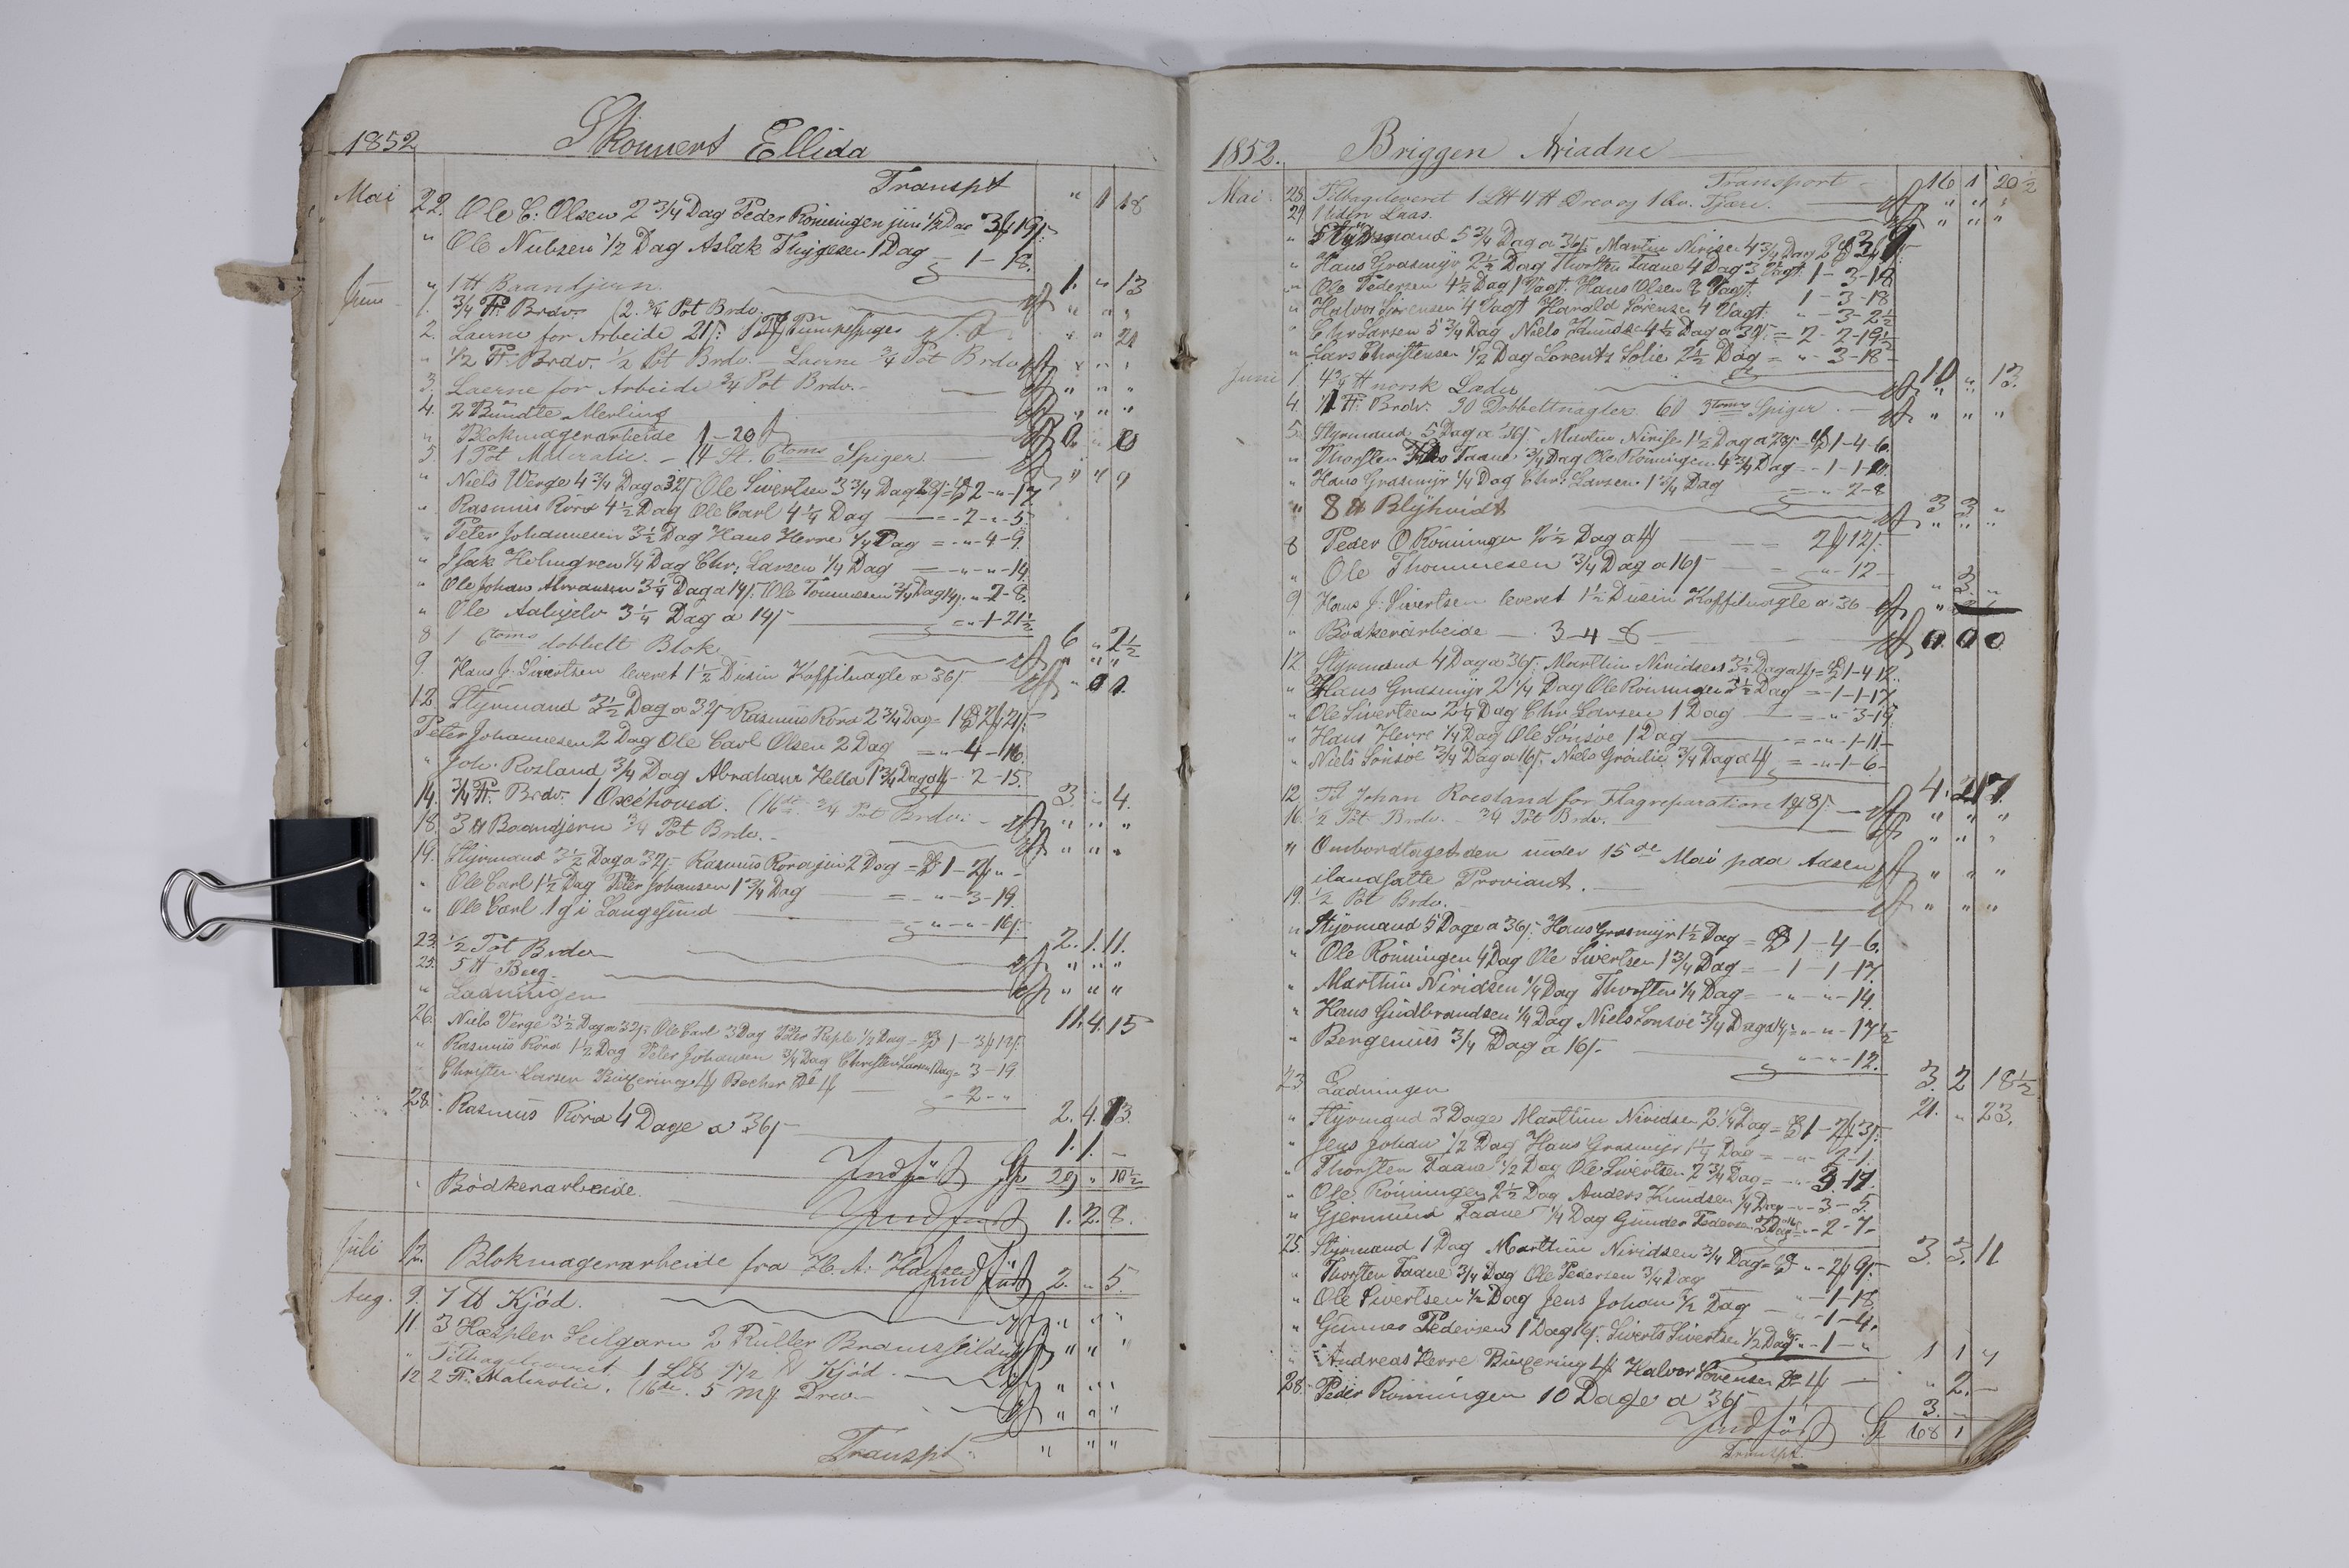 1852 Skonnert Ellida
Transpt " 1 18
Mai 22. Ole C: Olsen 2 3/4 Dag Peder Rönningen jun 1/2 Dag 3 19
" Ole Nielsen 1/2 Dag Aslak Thygesen 1 Dag - 1 - 18.
" 1 ℔ Baandjern 1. " 13
Juni 1. 3/4 Brdv. (2. 3/4 Pot Brdv. " " "
2. Laerne for Arbeide 21 Pumpespiger " " 21
" 1/2 Brdv. 1/2 Pot Brdv. - Laerne 3/4 Pot Brdv " " "
3. Laerne for Arbeide 3/4 Pot Brdv. - " " "
4. 2 Bundte Merling " " "
" Blokmagerarbeide 1 - 20 0 " 0
5. 1 Pot Maleralie. - 14 St. 6 toms Spiger " " 9
" Niels Werge 4 3/4 Dag a 32 Ole Sivertsen 3 3/4 Dag 2 - " - 17
" Rasmus Röra 4 1/2 Dag Ole Carl 4 1/4 Dag = - 2 - " - 5
" Peter Johannesen 3 1/2 Dag Hans Herre 1/4 Dag = - " - 4 - 9
" Isak Holmgren 1/4 Dag Chr. Larsen 1/4 Dag = - " - " - 14
" Ole Johan Abransen 3 1/4 Dag a 14 Ole Tommesen 3/4 Dag 14 " 2 - 8.
" Ole Aalvjelv 3 1/4 Dag a 14 = " 1 - 21 1/2
6 " 2 1/2
8 1 6 toms dobbelt Blok " " "
9. Hans J. Sivertsen leveret 1 1/2 Dusin Koffilnagle a 36 " 0 0.
12. Styrmand 3 1/2 Dag a 32 Rasmus Röra 2 3/4 Dag = 1 2 21
Peter Johannesen 2 Dag Ole Carl Olsen 2 Dag = " - 4 - 16.
" Joh. Rosland 3/4 Dag Abraham Hella 1 3/4 Dag - 2 - 15.
3. " 4.
14. 3/4 Brdv. 1 Oxehoved. (16de. 3/4 Pot Brdv. - " " "
18. 3 ℔ Baandjern 3/4 Pot Brdv. - " " "
19. Styrmand 3 1/2 Dag a 32 - Rasmus Röra jun 2 Dag = 1 - 2 " -
" Ole Carl 1 1/2 Dag Peter Johansen 1 3/4 Dag = - " - 3 - 19.
" Ole Carl 1 g i Langesund " - " - 16
2. 1. 11.
23. 1/2 Pot Brdv " " "
25. 5 ℔ Beeg. " " "
" Ladningen 11. 4. 15
26. Niels Verge 3 1/2 Dag a 32 Ole Carl 3 Dag Peter 1/2 Dag = 1 - 3 12
" Rasmus Röra 1 1/2 Dag Peter Johansen 3/4 Dag Christen Larsen 1 Dag = 3 - 19
Christen Larsen Buxering Becher Do - 2 - "
2. 4. 13.
28. Rasmus Röra 4 Dage a 36 1. 1. -
Indfört 29 " 10 1/2
" Bödkerarbeide. 1. 2. 8.
Indfört
Juli 12. Blokmagerarbeide fra H. A: Hansen 2. " 5.
Indfört
Aug. 9. 7 ℔ Kjöd. " " "
11. 3 Hespler Seilgarn 2 Ruller Bramseildug " " "
" Tilbageleveret 1 L℔ 7 1/2 ℔ Kjöd. -
12 2 Maleralie. (16de. 5 Drev " " "
Transpt. " " "
1852. Briggen Ariadne
Transport 16 1 20 1/2
Mai 28. Tilbageleveret 1 L℔ 4 ℔ Drev og 1 Kv. Tjære. " " "
29 1 liden Laas. " " "
" Styrmand 5 3/4 Dag a 36 Martin Nirisen 4 3/4 Dag 2
" Hans Grasmyr 2 1/2 Dag Thorsten Taane 4 Dag 3 Vagt 1 - 3 - 18
" Ole Pedersen 4 1/2 Dag 1 Vagt. Hans Olsen 8 Vagt. 1 - 3 - 18
" Halvor Sörensen 4 Vagt Harald Sörensen 4 Vagt. " - 3 - 2 1/2
" Chr Larsen 5 3/4 Dag Niels Knudsen 4 1/2 Dag a 32 = 2 - 2 - 19 1/2
" Lars Christensen 1/2 Dag Lorents Solie 2 1/2 Dag = " - 3 - 18 -
10 " 13.
Juni 1. 4 3/4 ℔ norsk Læder " " "
4. 1 Brdv. 30 Dobbeltnagler. 60 3 toms Spiger. - " " "
5. Styrmand 5 Dag a 36 Martin Nirise 1 1/2 Dag a 27 = 1 - 4 - 6.
" Thorsten Taane 3/4 Dag Ole Rönningen 4 3/4 Dag = - 1 - 1 -
" Hans Grasmyr 1/4 Dag Chr. Larsen 1 3/4 Dag = - " 2 - 8
3 3 "
" 8 ℔ Blyhvidt " " "
8 Peder O Rönningen 2 1/2 Dag a 2 12
" Ole Thommesen 3/4 Dag a 16 - " - 12 -
" 3. "
9 Hans J. Sivertsen leveret 1 1/2 Dusin Koffilnagle a 36
" Bödkerarbeide - 3 - 4 - 8 0 0 0
12. Styrmand 4 Dag a 36 Marthin Niridsen 3 1/2 Dag = 1 - 4 12.
" Hans Grasmyr 2 1/4 Dag Ole Rönningen 3 1/2 Dag = - 1 - 1 - 17
" Ole Sivertsen 2 1/4 Dag Chr Larsen 1 Dag = - " 3 - 19
" Hans Herre 1/4 Dag Ole Lönsöe 1 Dag = - " - 1 - 11 -
" Niels Lönsöe 3/4 Dag a 16 Niels Grönlie 3/4 Dag a = - " - 1 - 6 -
4. 2 17
12 Til Johan Roesland for Flagreparation " " "
16. 1/2 Pot Brdv. - 3/4 Pot Brdv. " " "
" Ombordtaget den under 15de Mai paa Aasen
ilandsatte Proviant. - " " "
19. 1/2 Pot Brdv. " " "
" Styrmand 5 Dage a 36 Hans Grasmyr 1 1/2 Dag = 1 - 4 - 6.
" Ole Rönningen 4 Dag Ole Sivertsen 1 3/4 Dag = - 1 - 1 - 17.
" Marthin Niridsen 1/4 Dag Thorsten 1/4 Dag = - " - " - 14.
" Hans Gudbrandsen 1/4 Dag Niels Lönsöe 3/4 Dag " - " - 17 1/2
" Bergenius 3/4 Dag a 16 " - " - 12.
3. 2 18 1/2
23 Ladningen 21. " 23.
" Styrmand 3 Dage Marthin Niridsen 2 1/4 Dag = 1 - 2 3
" Jens Johan 1/2 Dag Hans Grasmyr 1 1/4 Dag = - " - 2 - 1.
" Thorsten Taane 1/2 Dag Ole Sivertsen 2 3/4 Dag = - " 3 - 17.
" Ole Rönningen 2 1/2 Dag Anders Knudsen 1/4 Dag - " - 3 - 5.
" Gjermund Taane 1/4 Dag Gunder Pedersen Dag - 2 - 7 -
3. 3. 11.
25. Styrmand 1 Dag Marthin Niridsen 3/4 Dag = " - 2 9
" Thorsten Taane 3/4 Dag Ole Pedersen 3/4 Dag - 1 - 18
" Ole Sivertsen 1/2 Dag Jens Johan 1/2 Dag - " - 1 - 4.
" Gunner Pedersen 1 Dag 16 Siverts Sivertsen 1/2 Dag " - 1 - "
1 1 7
" Andreas Herre Buxering Halvor Sörensen Do - " 2. -
28. Peder Rönningen 10 Dage a 36 3. -
Indfört 68 1
Transpt.